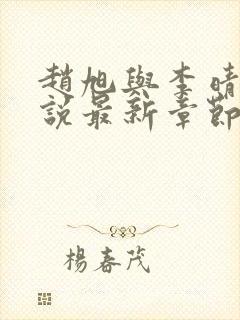 趙旭與李晴
說最新章節
楊春茂